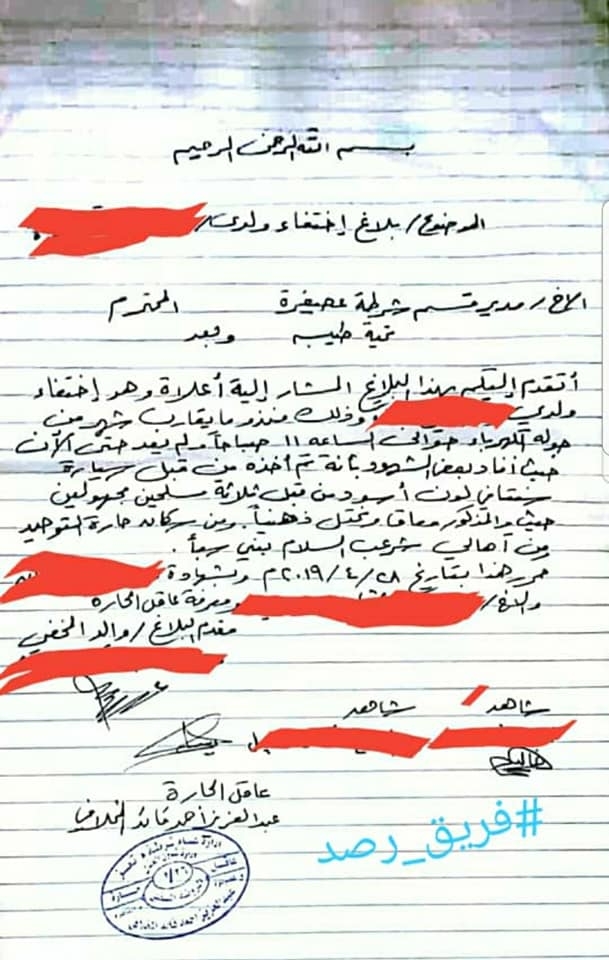 بسم الله الرحمن الرحيم
الموضوع/ بلاغ إختفاء ولدي/
الاخ/ مدير قسم شرطة عصيفرة المحترم
تحية طيبه وبعد
أتقدم إليكم بهذا البلاغ المشار إلية أعلاة وهو إختفاء
ولدي وذلك منذو ما يقارب شهر من
جوله الكهرباء حوالى الساعه ١١ صباحاً ولم يعد حتى الآن
حيث أفاد بعض الشهود بأنة تم أخذه من قبل سيارة
سنتافي لون أسود من قبل ثلاثة مسلحين مجهولين
حيث والمذكور معاق ومختل ذهنياً. ومن سكان حارة التوحيد
ومن أهالي شرعب السلام بني سبأ.
حرر هذا بتاريخ ٢٨/٤/٢٠١٩م وبشهادة
والاخ/ ومعرفة عاقل الحاره
مقدم البلاغ/ والد المخفي
شاهد شاهد
عاقل الحارة
عبدالعزيز أحمد قائد الخلافي
#فريق_رصد